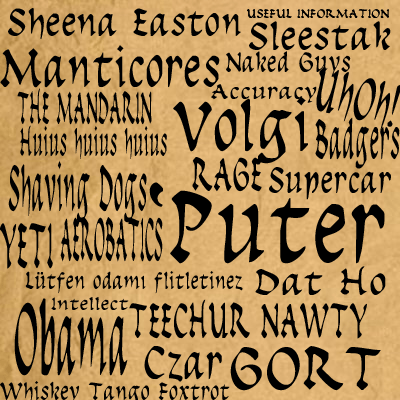 Sheena Easton
USEFUL INFORMATION
Sleestak
Manticores
Naked Guys
Accuracy
UhOh!
THE MANDARIN
Volgi
Huius huius huius
Badger's
RAGE
Supercar
Shaving Dogs
Puter
YETI
AEROBATICS
Lütfen odamı flitletinez
Dat Ho
Intellect
Obama
TEECHUR NAWTY
Czar
GORT
Whiskey Tango Foxtrot